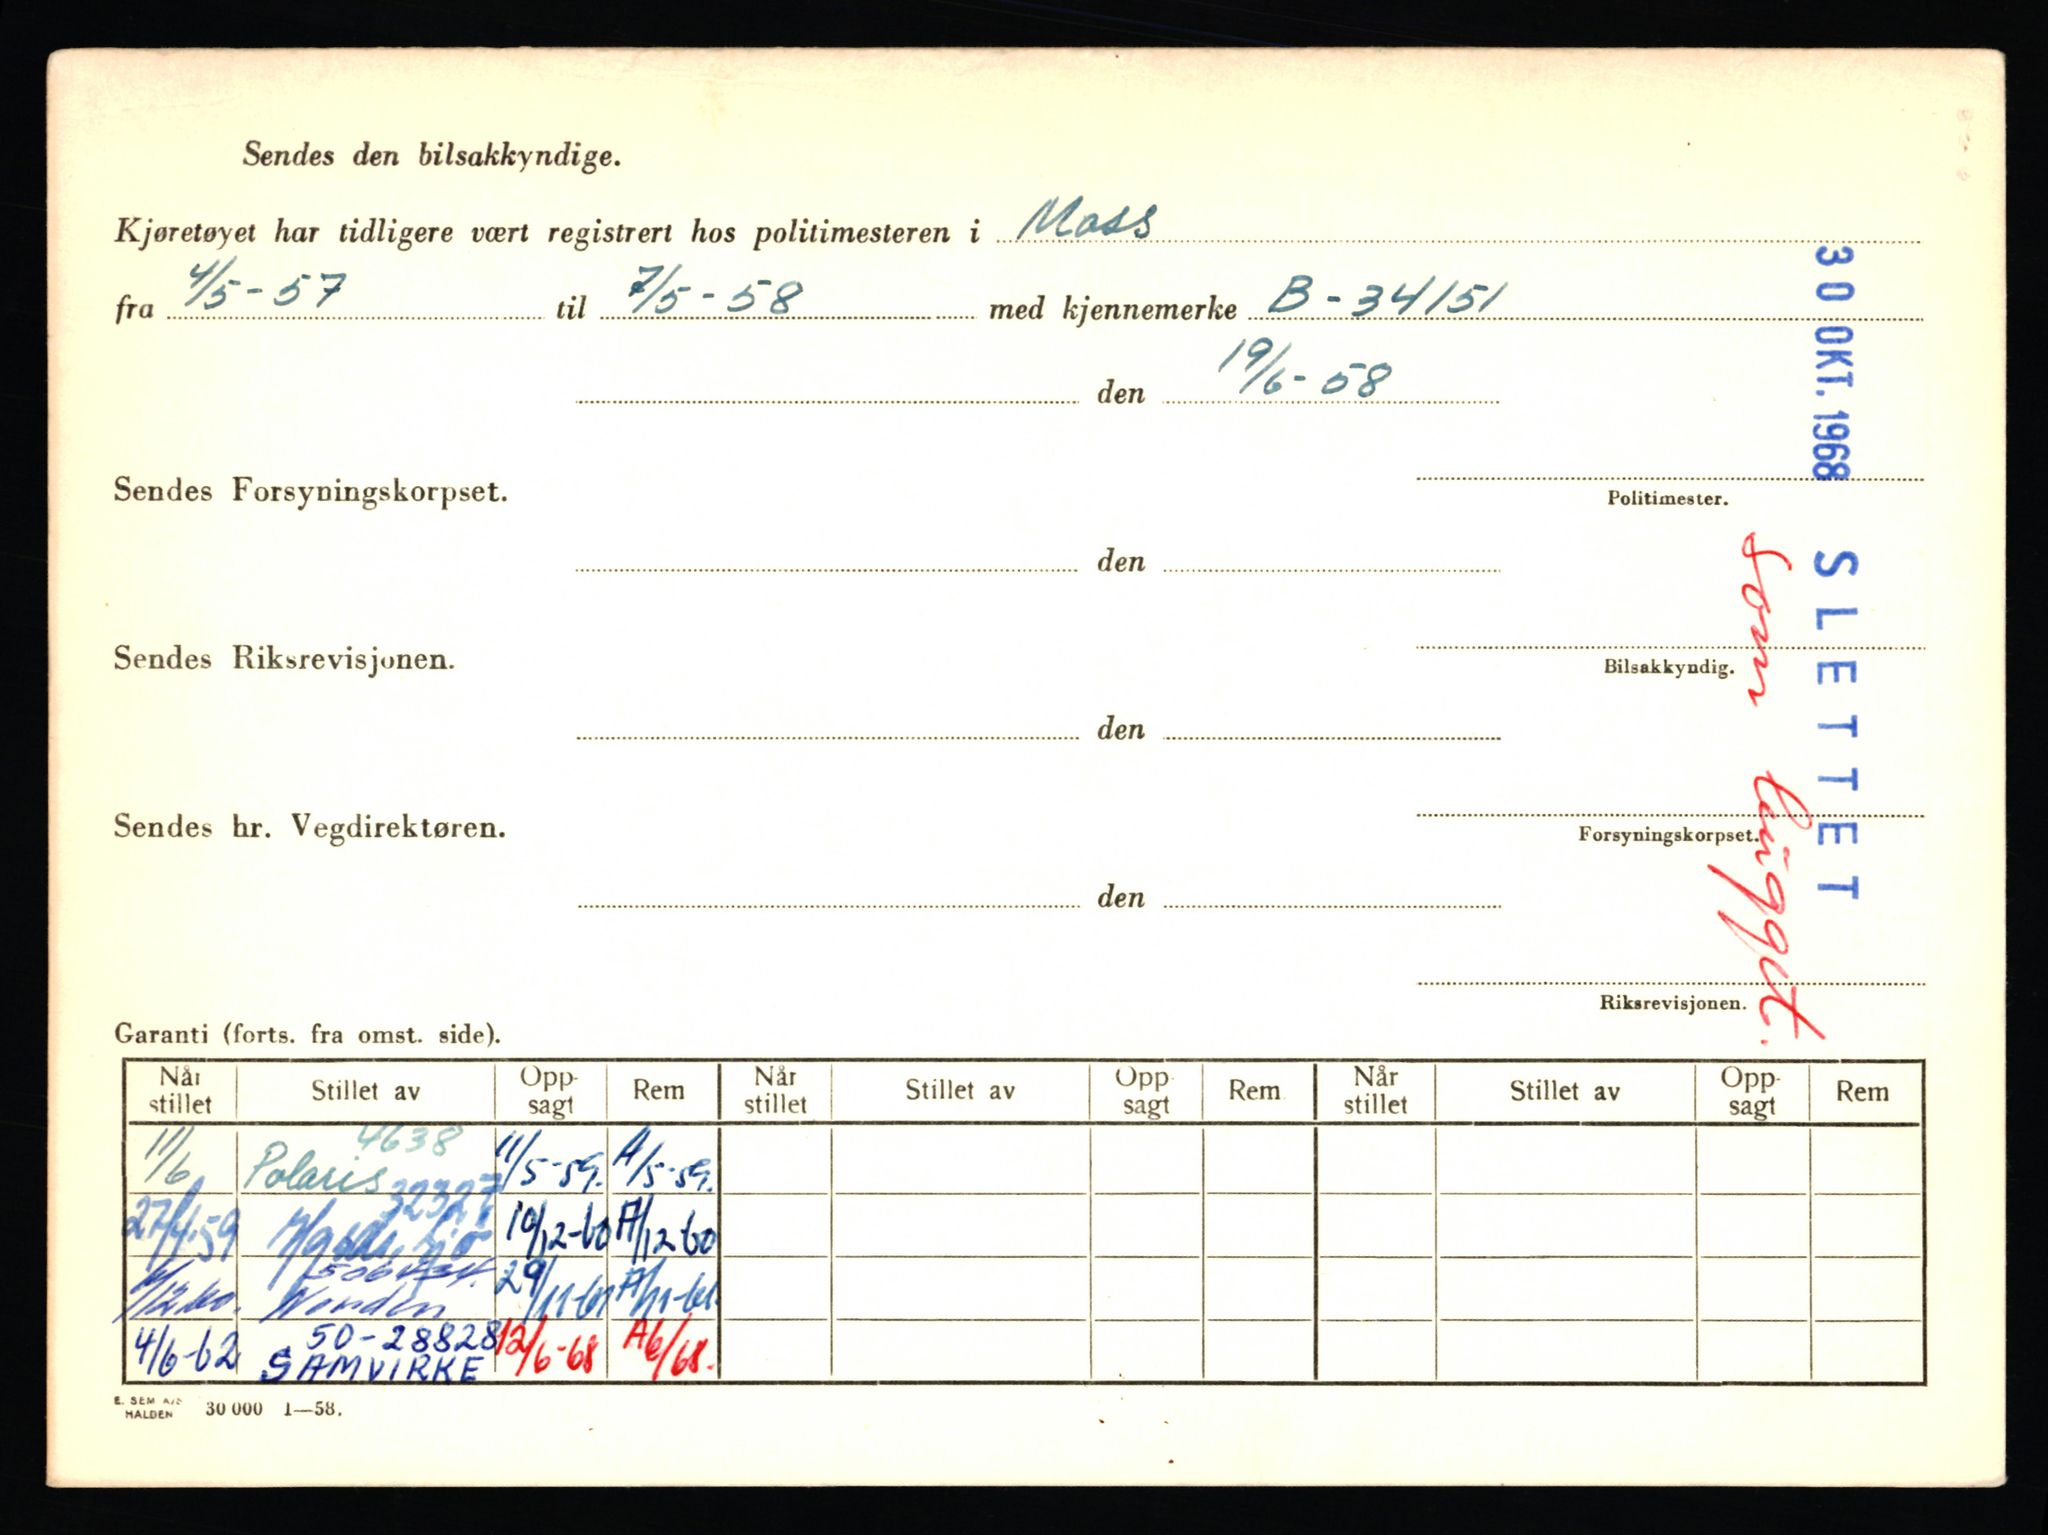 Sendes den bilsakkyndige.
Kjøretøyet har tidligere vært registrert hos politimesteren i Moss
fra 4/5-57 til 7/5-58 med kjennemerke B-34151
den 19/6-58
Sendes Forsyningskorpset.
Politimester.
den
Sendes Riksrevisjonen.
Bilsakkyndig.
den
Sendes hr. Vegdirektøren.
Forsyningskorpset.
den
Riksrevisjonen.
30 OKT. 1968 SLETTET
som
Garanti (forts. fra omst. side).
Når stillet Stillet av Opp-sagt Rem Når stillet Stillet av Opp-sagt Rem Når stillet Stillet av Opp-sagt Rem
4638
11/6 Polaris 11/5-59. A/5-59.
32327
27/4-59 10/12-60 A/12-60
Norden 29/11-61 A/11-61.
50-28828
4/6-62 SAMVIRKE 12/6-68 A6/68.
E. SEM A/S
HALDEN 30 000 1—58.